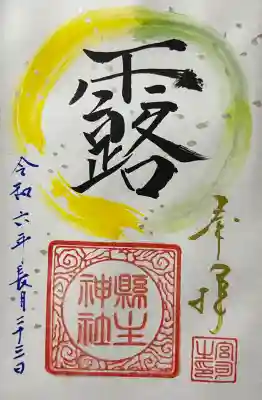 奉拝
露
令和六年長月二十三日
縣主
神社
宮司
之印